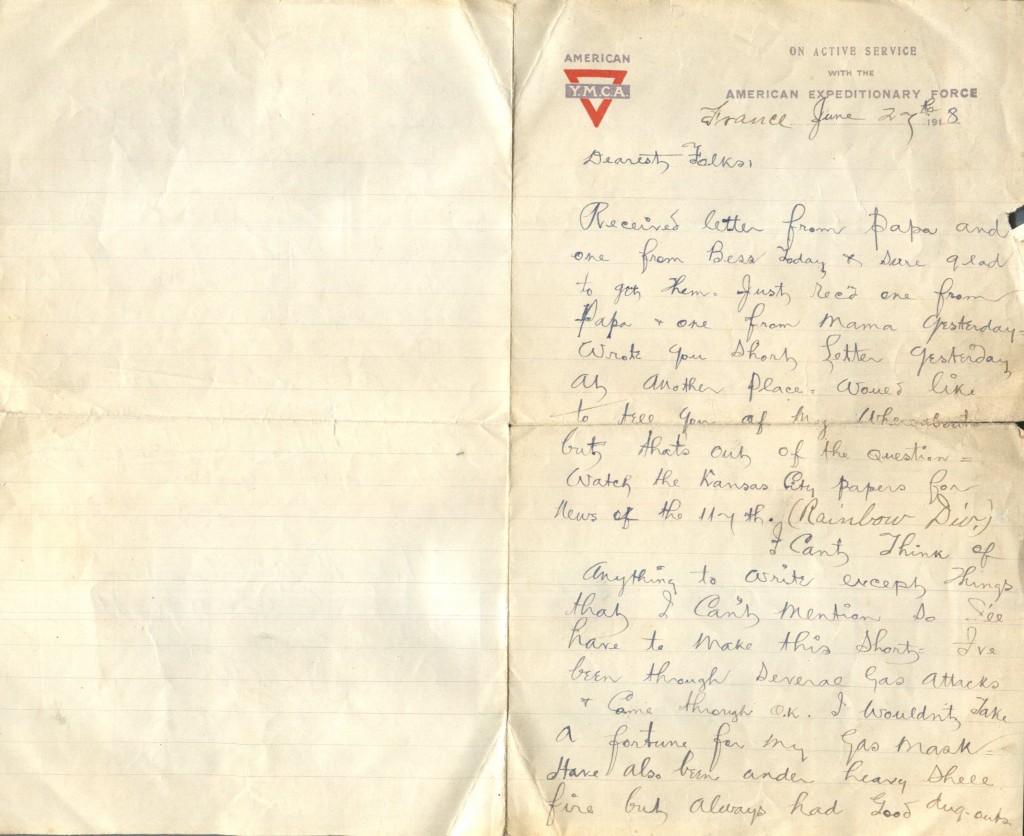 AMERICAN
Y.M.C.A.
ON ACTIVE SERVICE
WITH THE
AMERICAN EXPEDITIONARY FORCE
France June 27th 1918.
Dearest Folks,
Received letter from Papa and
one from Bess Today & sure glad
to get them. Just rec'd one from
Papa & one from Mama Yesterday.
Wrote you Short Letter Yesterday
At Another Place. Would like
to tell you of My Whereabouts
but thats out of the question =
Watch the Kansas City papers for
News of the 117th. (Rainbow Div.)
I Cant Think of
Anything to write except Things
that I Can't Mention So I'll
have to Make this Short = I've
been through Several Gas Attacks
& Came through O.K. I Wouldn't Take
A fortune for my Gas Mask =
Have also been under heavy Shell
fire but Always had Good dug-outs